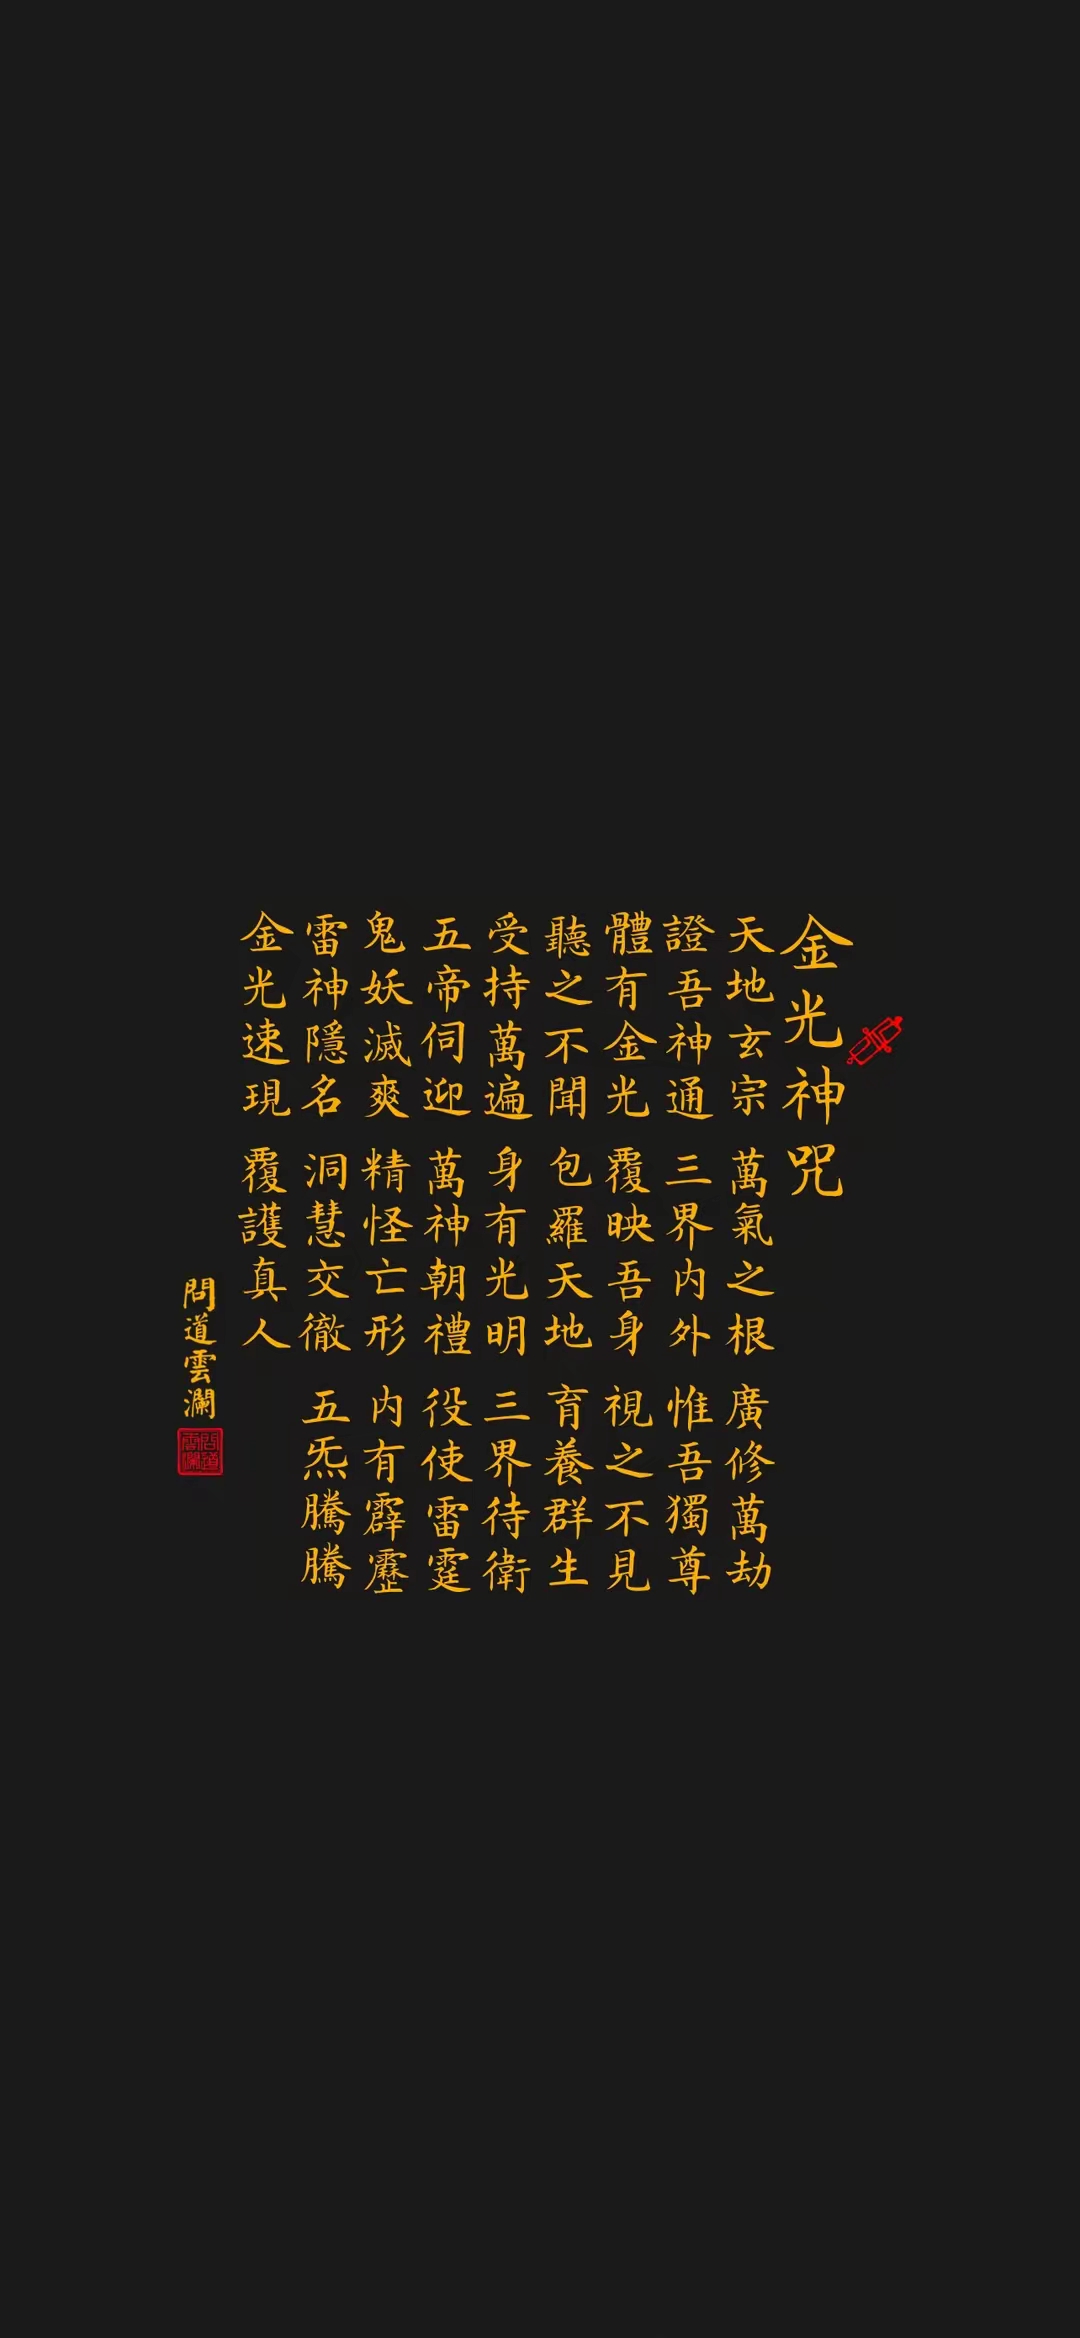 金光神咒
天地玄宗 萬氣之根 廣修萬劫
證吾神通 三界內外 惟吾獨尊
體有金光 覆映吾身 視之不見
聽之不聞 包羅天地 育養群生
受持萬遍 身有光明 三界待衛
五帝伺迎 萬神朝禮 役使雷霆
鬼妖滅爽 精怪亡形 內有霹靂
雷神隱名 洞慧交徹 五炁騰騰
金光速現 覆護真人
問道雲瀾
問道雲瀾